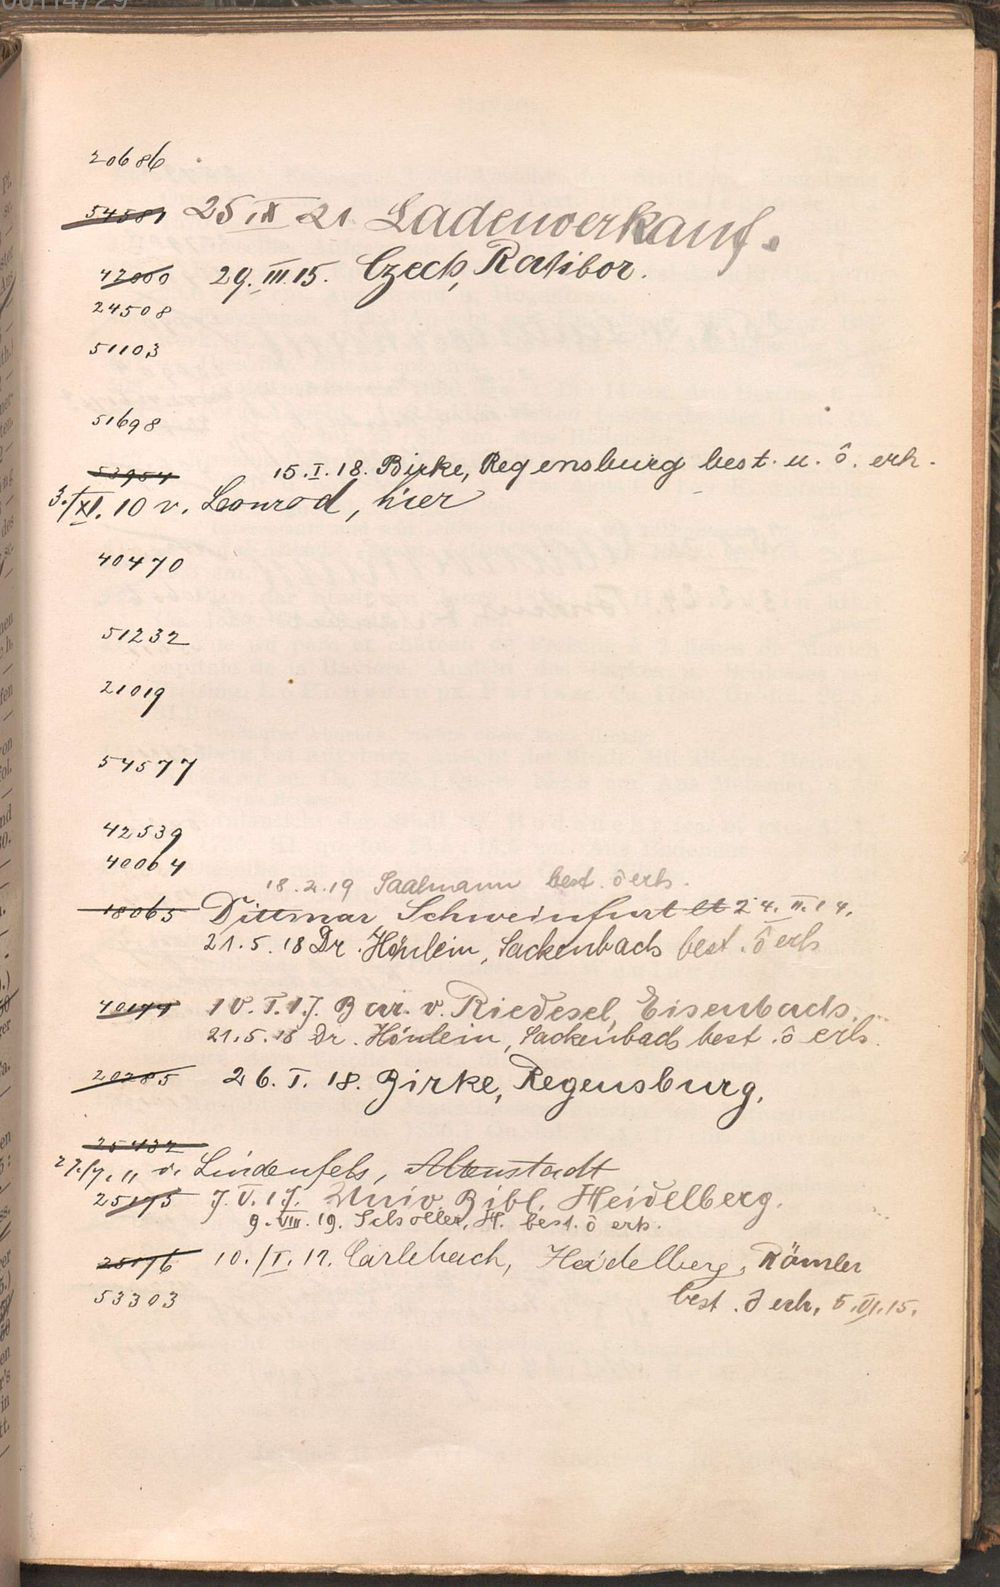 20686
54581 25 IX 21 Ladenverkauf.
42000 29. III. 15. Czech, Ratibor.
24508
51103
51698
53954 15. I. 18. Birke, Regensburg best. u. ô. erh.
3./XI. 10 v. Conrod, hier
40470
51232
21019
54577
42539
40064
18.2.19 Saalmann best. ô erh.
18065 Dittmar Schweinfurt lt 24. II. 14.
21.5.18 Dr. Hönlein, Sackenbach best. ô erh
40144 10. I. 17. Bar. v. Riedesel, Eisenbach.
21.5.18 Dr. Hönlein, Sackenbach best. ô erh.
20285 26. I. 18. Birke, Regensburg.
25432
27./7. 11 v. Lindenfels, Altenstadt
25175 7. V. 17. Univ. Bibl. Heidelberg.
9. VIII. 19. Schoeller, H. best. ô erh.
25176 10./I. 12. Carlebach, Heidelberg, Römler
53303 best. ô erh. 5. VI. 15.